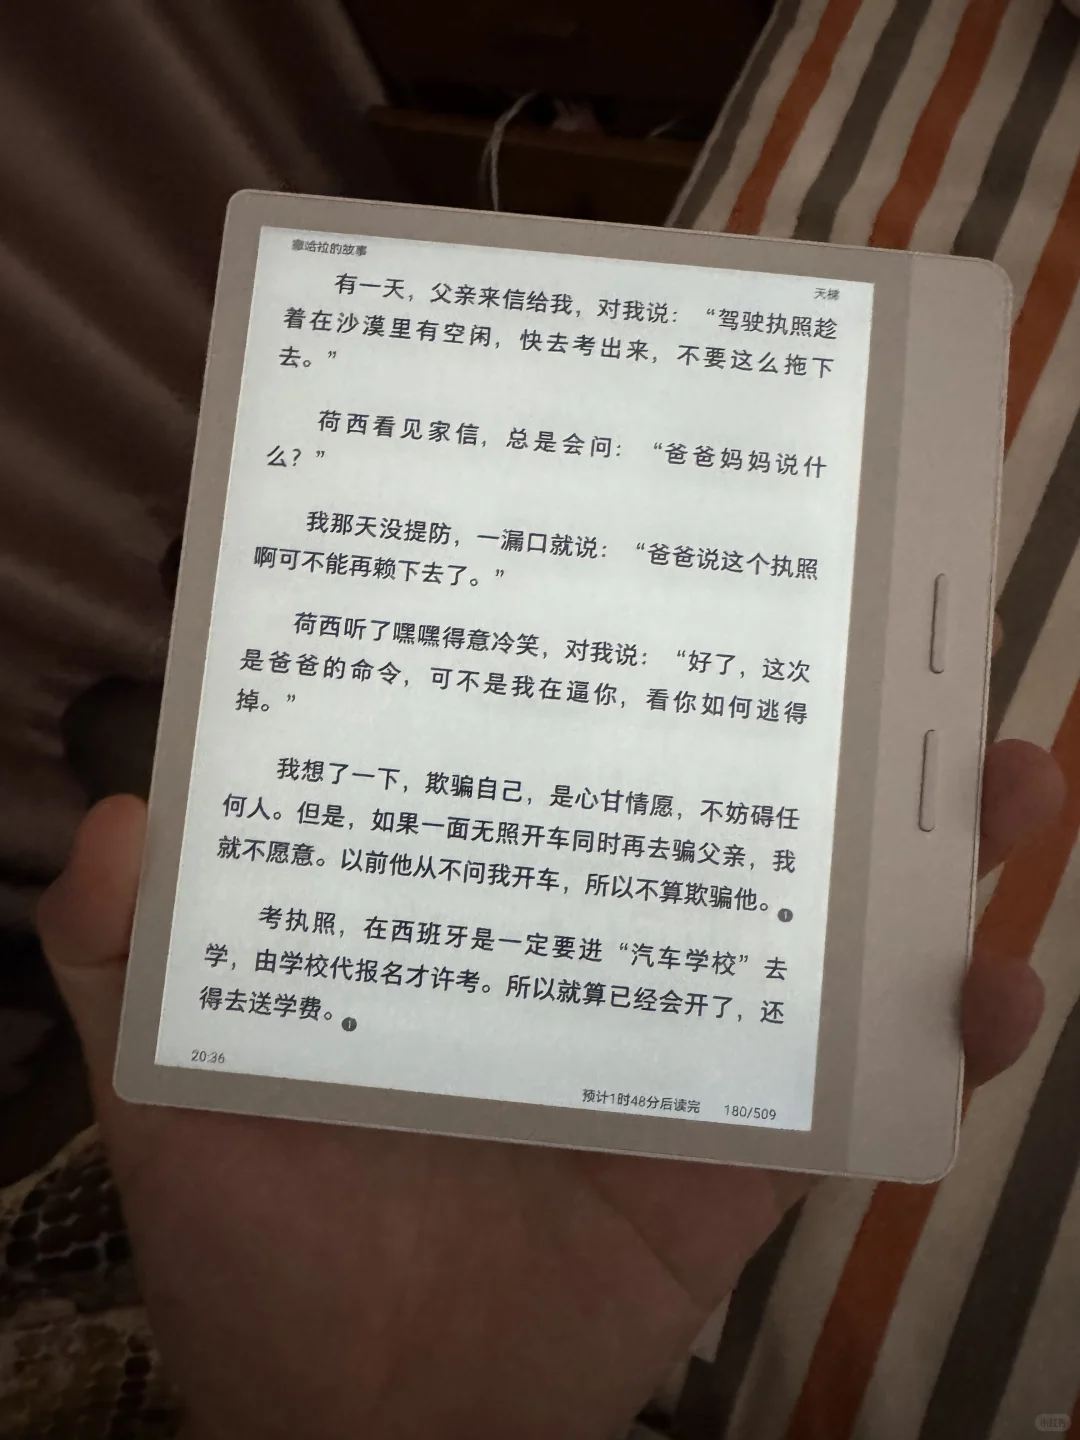 撒哈拉的故事
天梯
有一天，父亲来信给我，对我说：“驾驶执照趁
着在沙漠里有空闲，快去考出来，不要这么拖下
去。”
荷西看见家信，总是会问：“爸爸妈妈说什
么？”
我那天没提防，一漏口就说：“爸爸说这个执照
啊可不能再赖下去了。”
荷西听了嘿嘿得意冷笑，对我说：“好了，这次
是爸爸的命令，可不是我在逼你，看你如何逃得
掉。”
我想了一下，欺骗自己，是心甘情愿，不妨碍任
何人。但是，如果一面无照开车同时再去骗父亲，我
就不愿意。以前他从不问我开车，所以不算欺骗他。
考执照，在西班牙是一定要进“汽车学校”去
学，由学校代报名才许考。所以就算已经会开了，还
得去送学费。
20:36
预计1时48分后读完 180/509
小红书